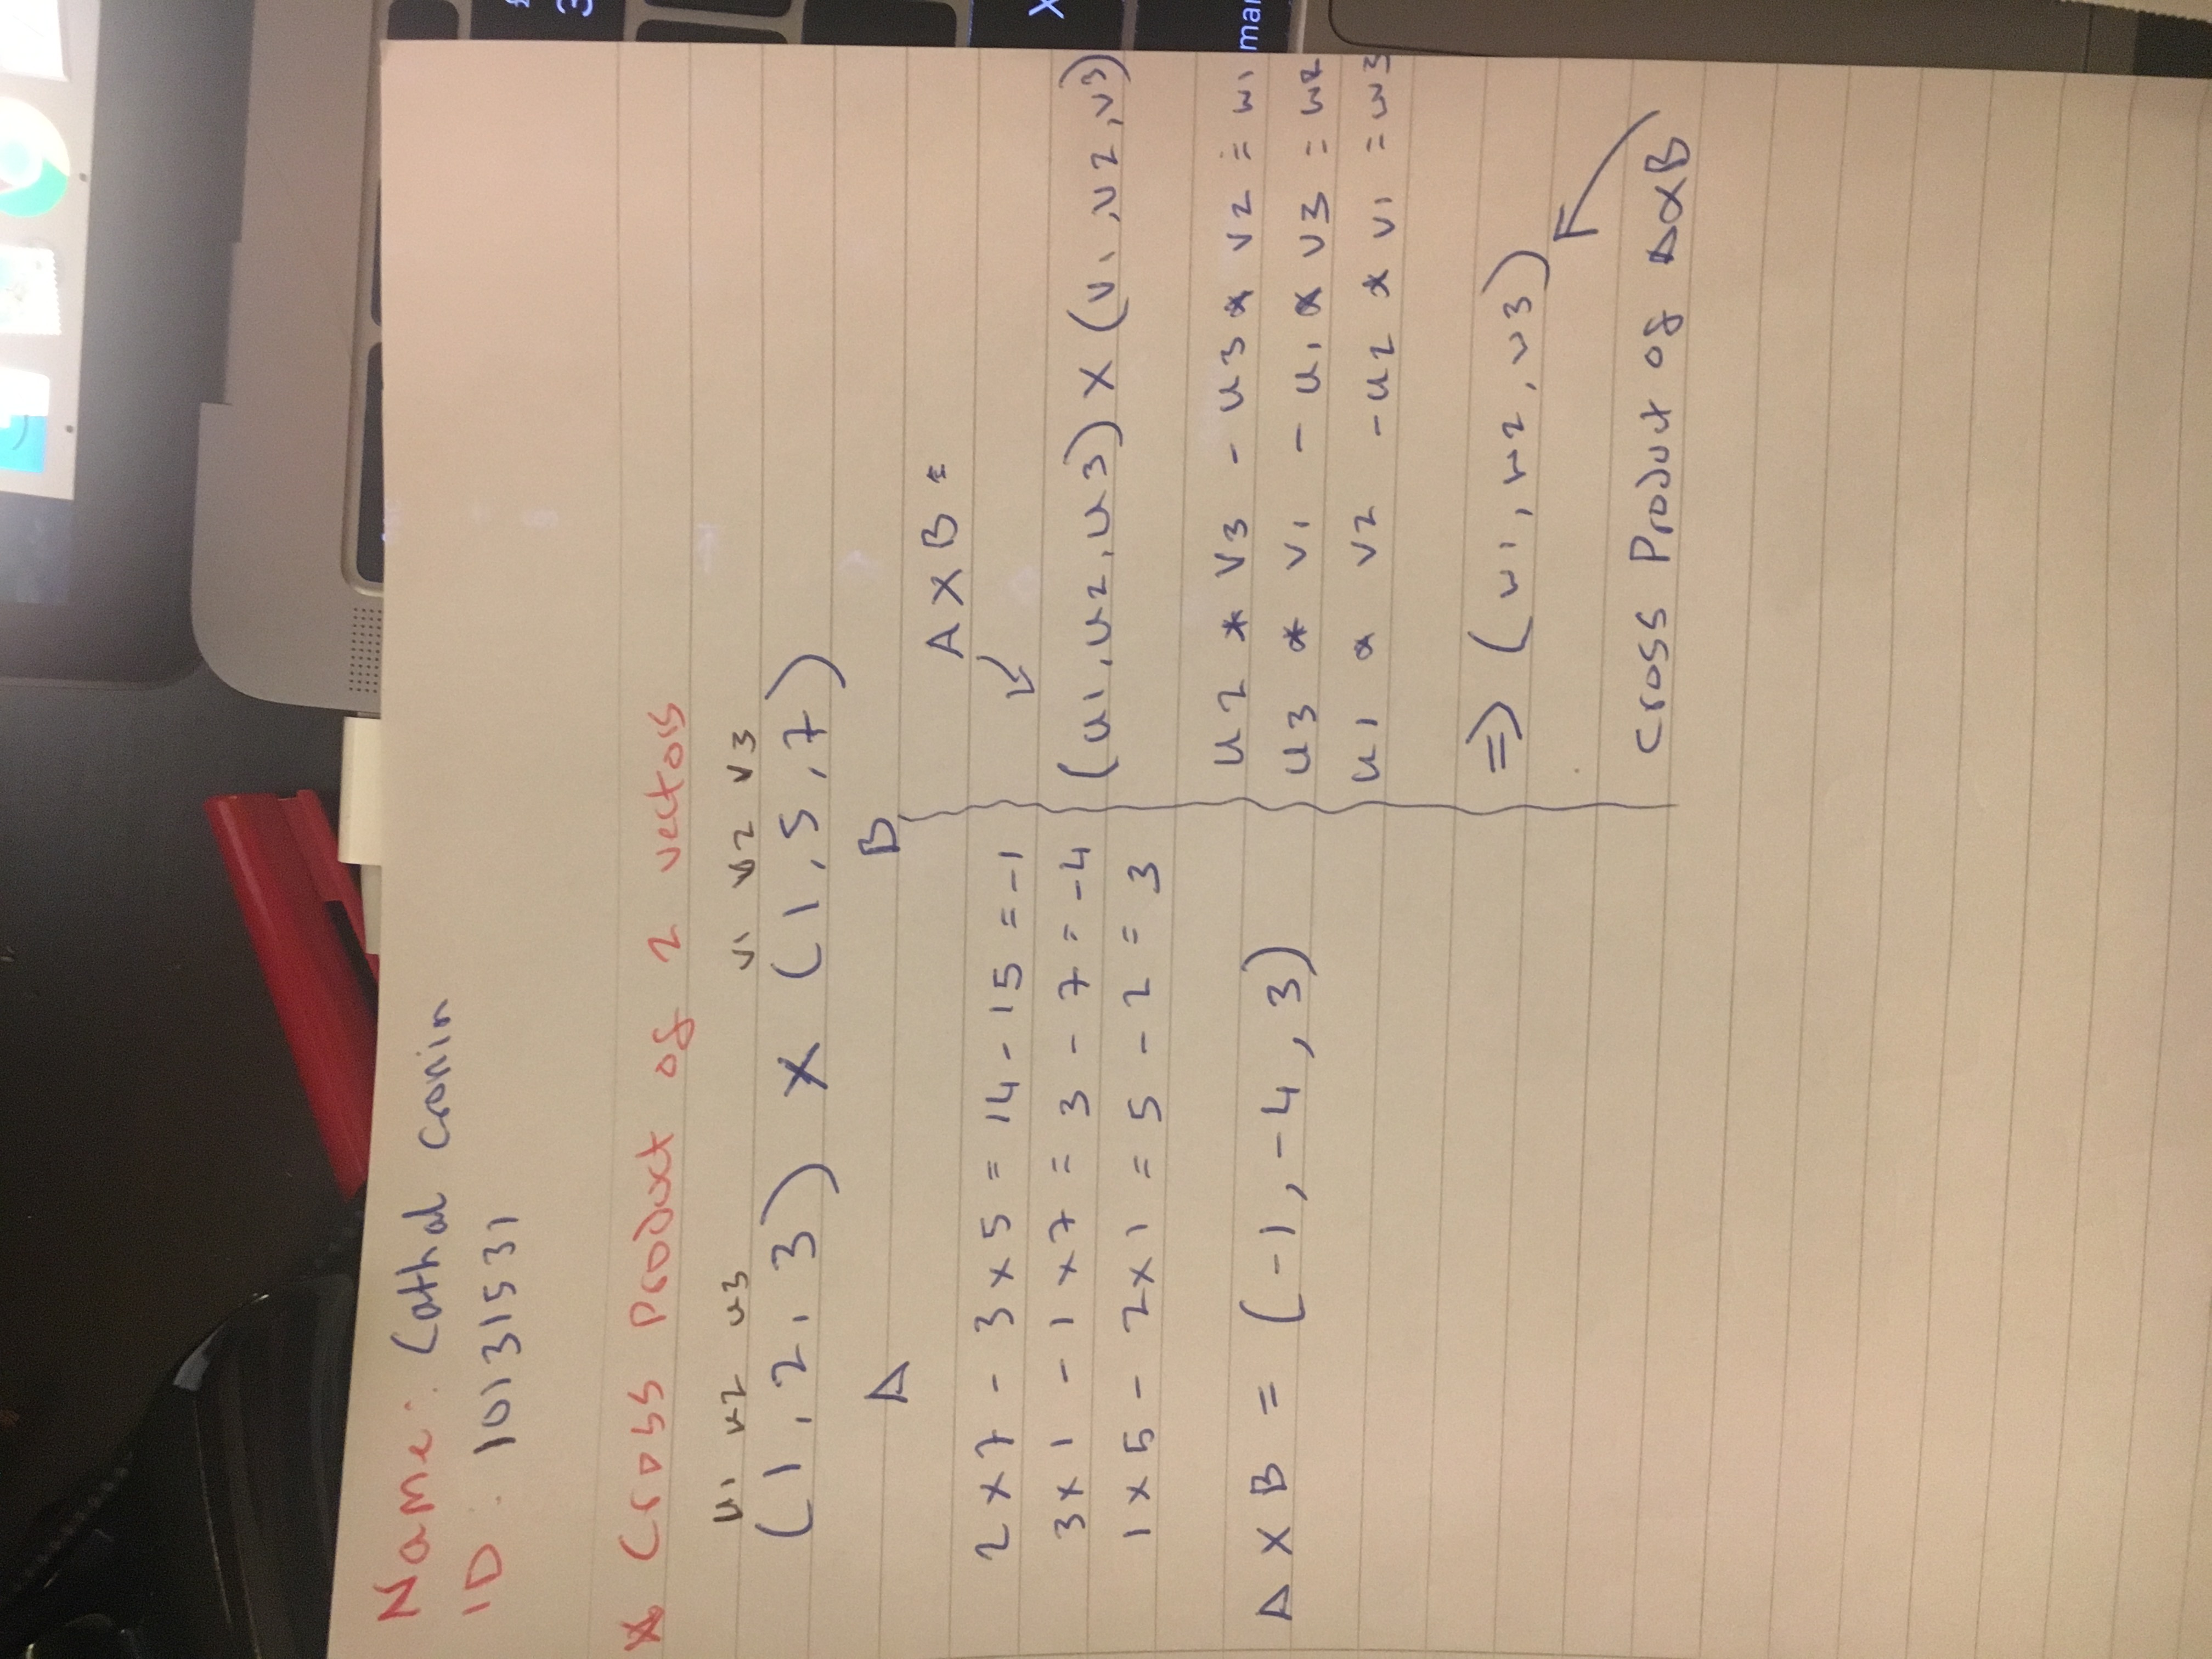 Name: Cathal Cronin
ID: 10131531
* Cross Product of 2 vectors
u1 u2 u3 v1 v2 v3
(1, 2, 3) X (1, 5, 7)
A B
2 x 7 - 3 x 5 = 14 - 15 = -1
3 x 1 - 1 x 7 = 3 - 7 = -4
1 x 5 - 2 x 1 = 5 - 2 = 3
A X B = (-1, -4, 3)
A X B =
(u1, u2, u3) X (v1, v2, v3)
u2 * v3 - u3 * v2 = w1
u3 * v1 - u1 * v3 = w2
u1 * v2 - u2 * v1 = w3
=> (w1, w2, w3)
Cross Product of AXB